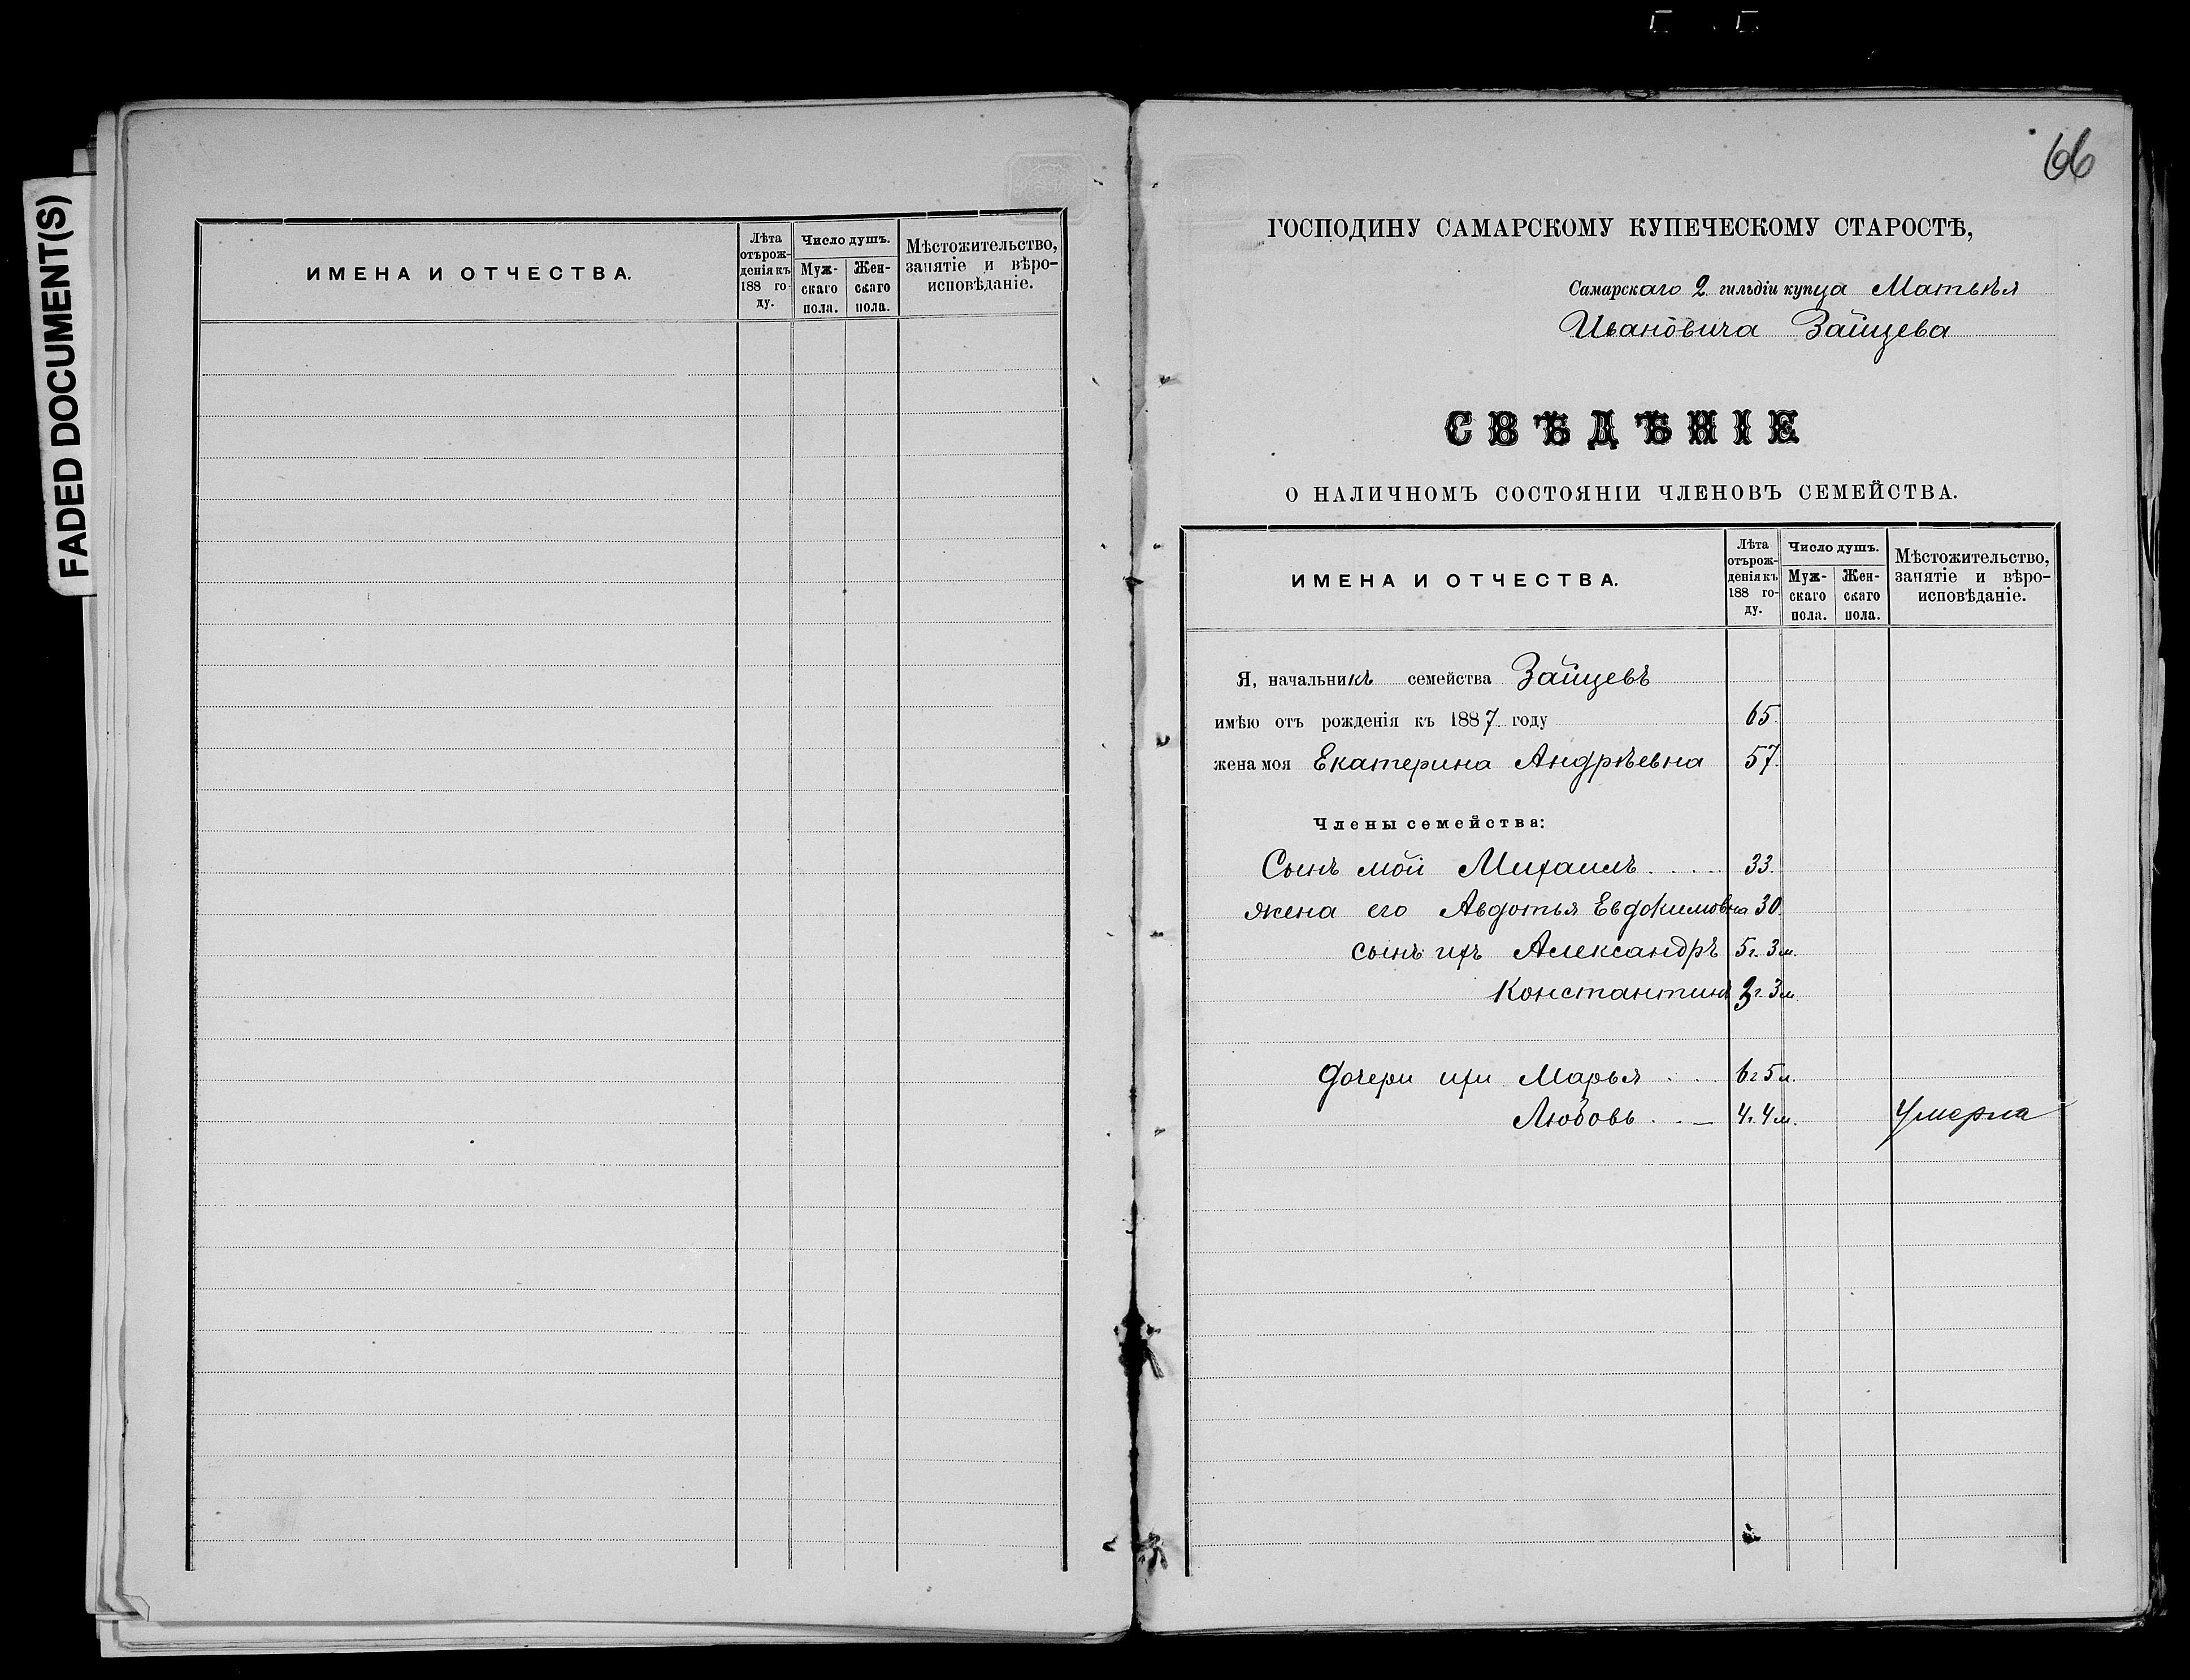 FADED DOCUMENT(S)
ИМЕНА И ОТЧЕСТВА.
Лѣта
отърож-
денія къ
188 го-
ду.
Число душъ.
Муж-
скаго
пола.
Жен-
скаго
пола.
Мѣстожительство,
занятіе и вѣро-
исповѣданіе.
66
ГОСПОДИНУ САМАРСКОМУ КУПЕЧЕСКОМУ СТАРОСТѢ,
Самарскаго 2 гильдіи купца Матвѣя
Ивановича Зайцева
СВѢДѢНІЕ
О НАЛИЧНОМЪ СОСТОЯНІИ ЧЛЕНОВЪ СЕМЕЙСТВА.
ИМЕНА И ОТЧЕСТВА.
Лѣта
отърож-
денія къ
188 го-
ду.
Число душъ.
Муж-
скаго
пола.
Жен-
скаго
пола.
Мѣстожительство,
занятіе и вѣро-
исповѣданіе.
Я, начальникъ семейства Зайцевъ
имѣю отъ рожденія къ 1887 году 65.
жена моя Екатерина Андрѣевна 57.
Члены семейства:
Сынъ мой Михаилъ..... 33.
жена его Авдотья Евдокимовна 30.
сынъ ихъ Александръ 5г. 3м.
Константинъ г. 3м.
Дочери ихъ Марья ... 6г 5м.
Любовь ..— 4г. 4м. Умерла